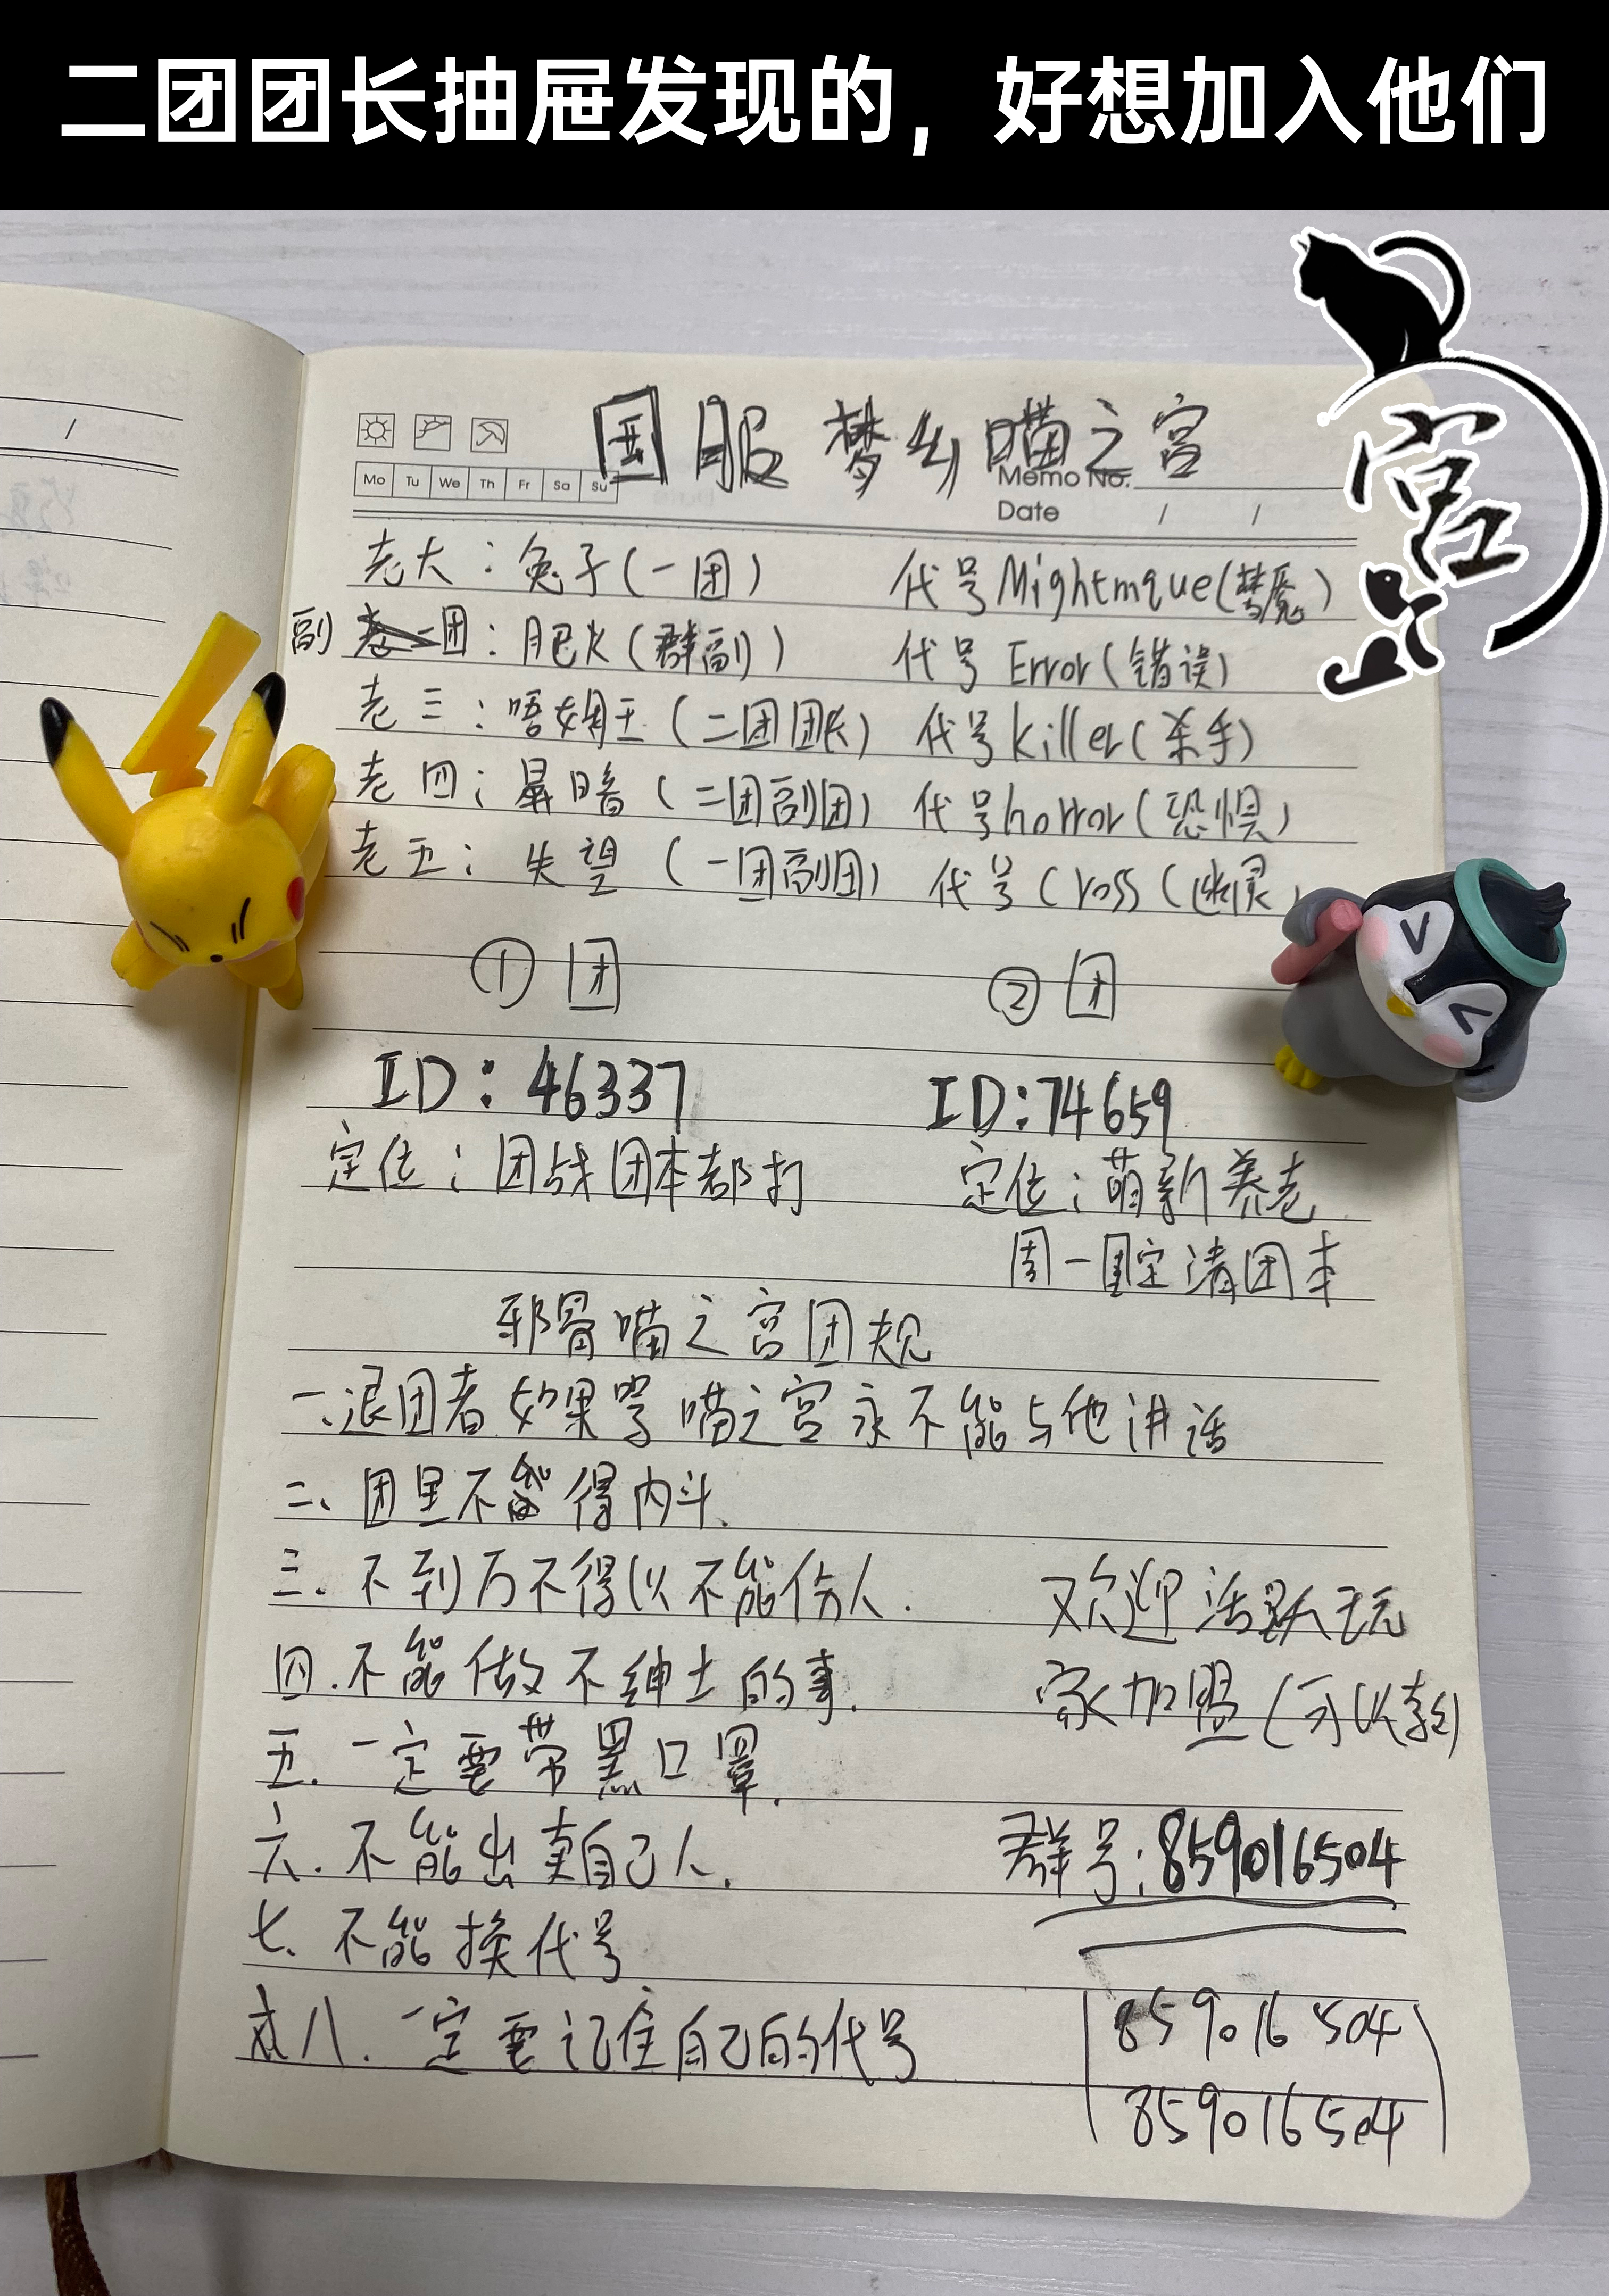 二团团长抽屉发现的，好想加入他们
宫
Mo Tu We Th Fr Sa Su
Memo No.
Date / /
国服 梦幻喵之宫
老大：兔子（一团） 代号Mightmque（梦魇）
副团：肥火（群副） 代号Error（错误）
老三：唔姆王（二团团长） 代号killer（杀手）
老四：暗（二团副团） 代号horror（恐惧）
老五：失望（一团副团） 代号Cross（幽灵）
①团 ②团
ID：46337 ID:74659
定位：团战团本都打 定位：萌新养老
周一固定清团本
邪骨喵之宫团规
一、退团者如果骂喵之宫永不能与他讲话
二、团里不得内斗.
三.不到万不得以不能伤人. 欢迎活跃玩
四.不能做不绅士的事. 家加盟（可收养）
五.一定要带黑口罩.
六.不能出卖自己人. 群号:859016504
七.不能换代号
八.一定要记住自己的代号 859016504
859016504